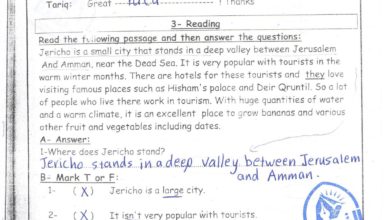 Tariq: Great ! Thanks
3- Reading
Read the following passage and then answer the questions:
Jericho is a small city that stands in a deep valley between Jerusalem
And Amman, near the Dead Sea. It is very popular with tourists in the
warm winter months. There are hotels for these tourists and they love
visiting famous places such as Hisham's palace and Deir Qruntil. So a lot
of people who live there work in tourism. With huge quantities of water
and a warm climate, it is an excellent place to grow bananas and various
other fruit and vegetables including dates.
A- Answer:
1-Where does Jericho stand?
Jericho stands in a deep valley between Jerusalem
and Amman.
B- Mark T or F:
1- (X) Jericho is a large city.
2- (X) It isn't very popular with tourists.